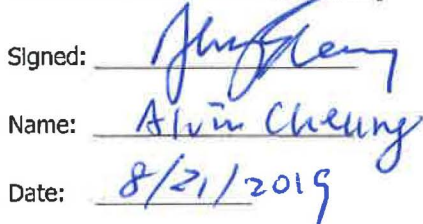 Signed:
Name: Alvin Cheung
Date: 8/21/2019